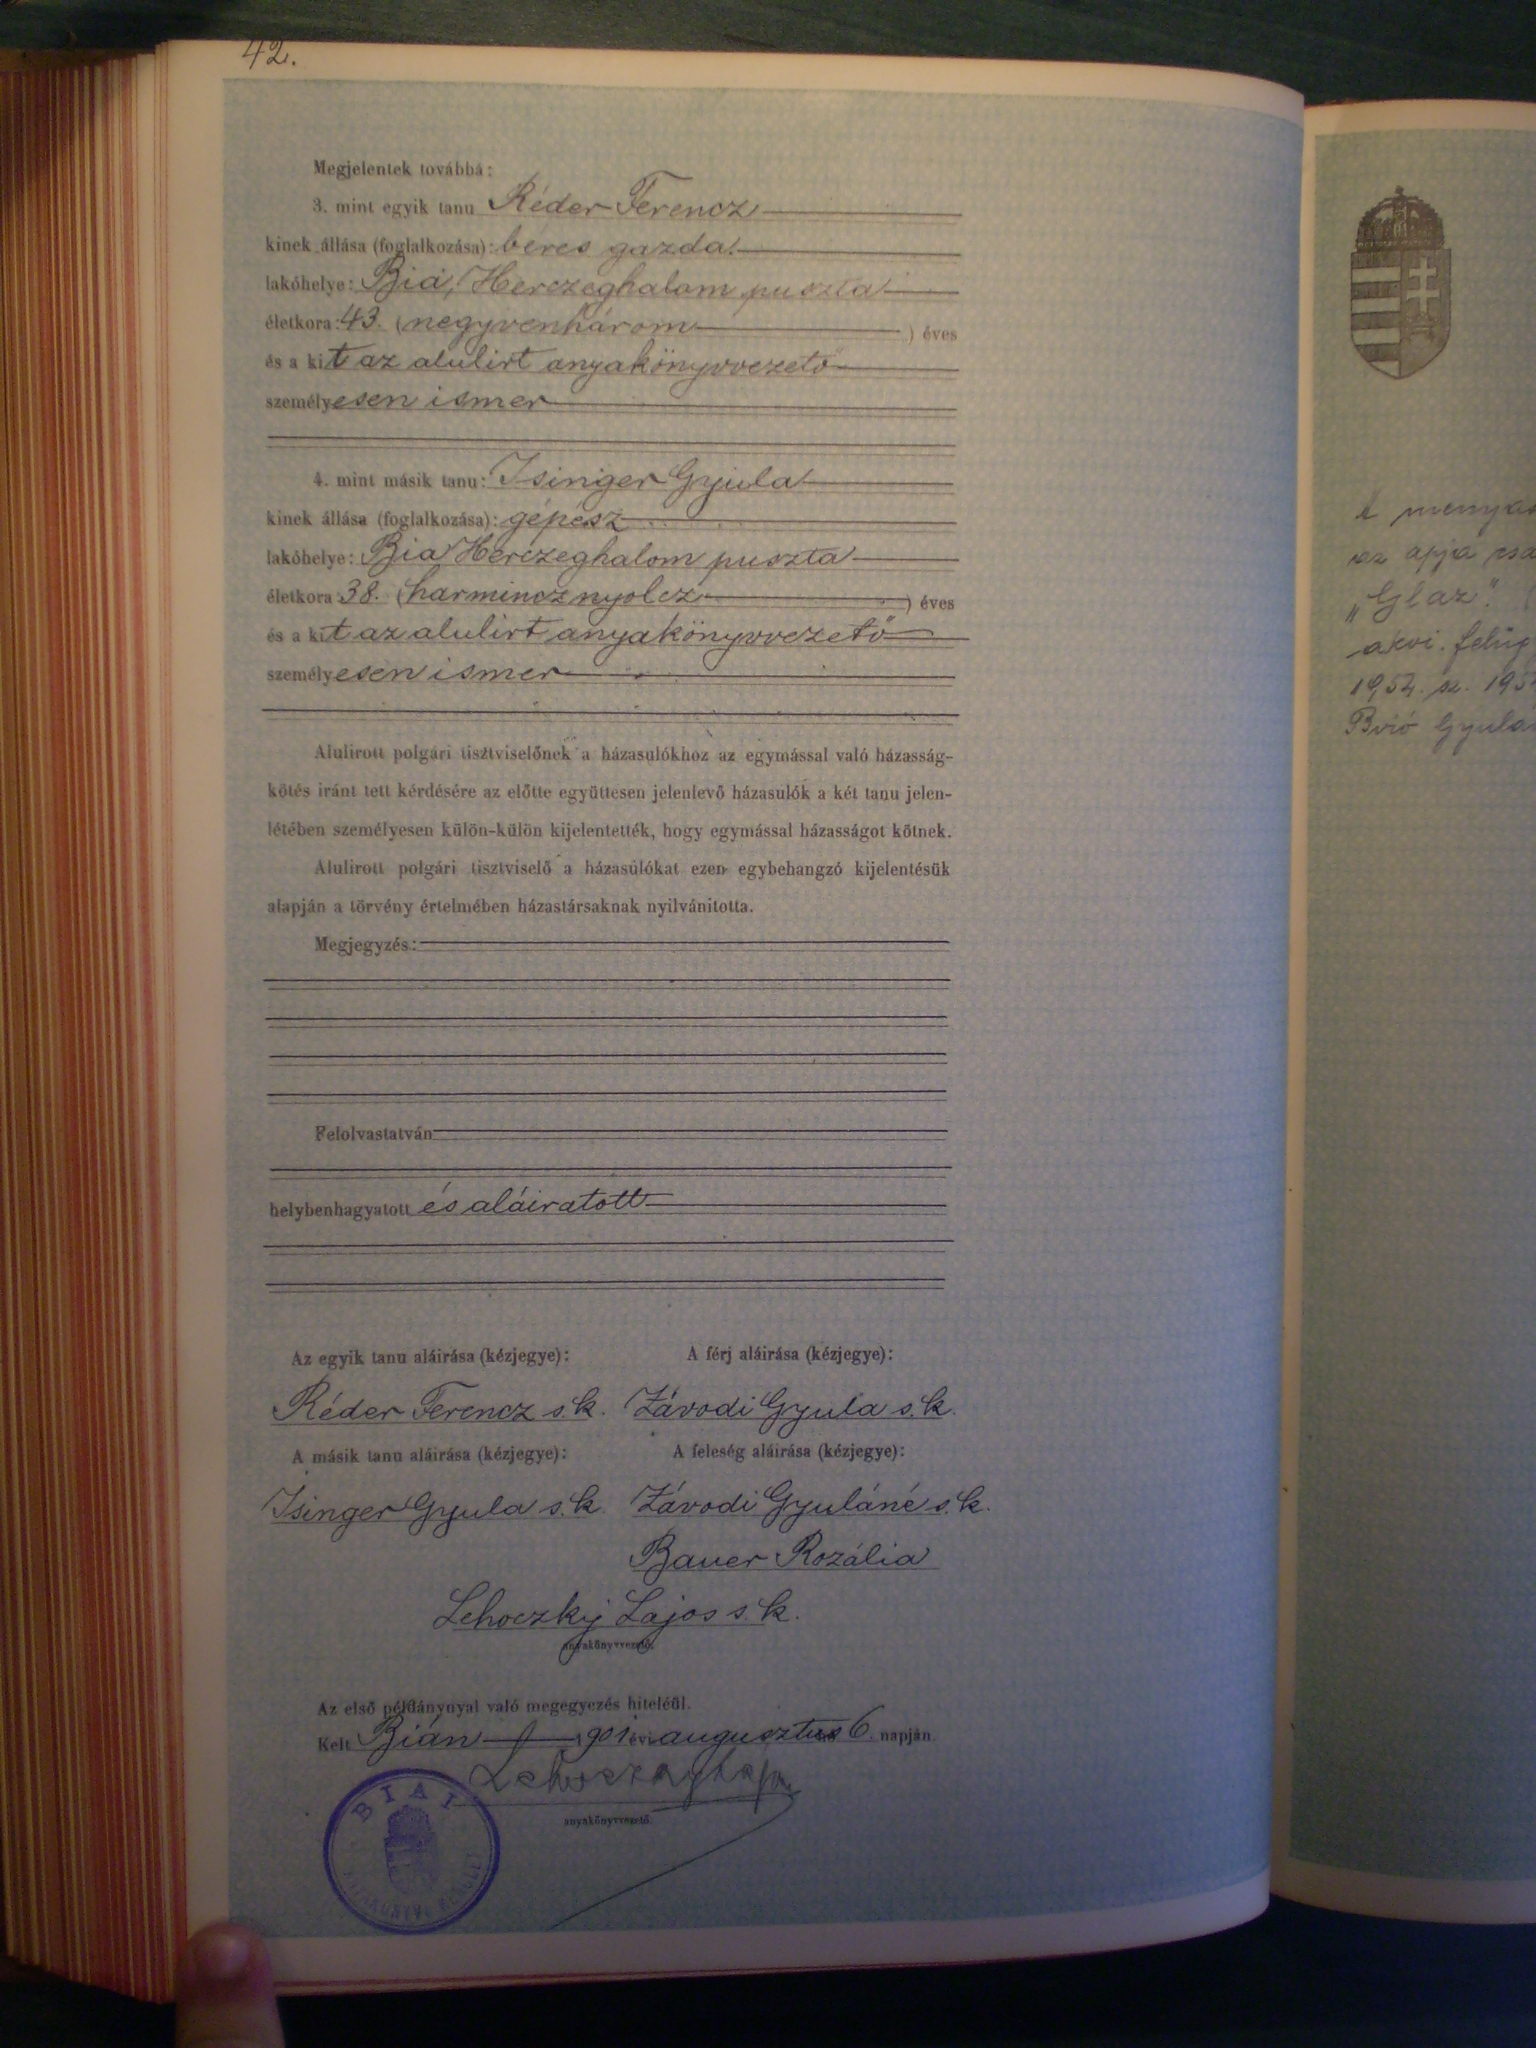 42.
Megjelentek továbbá:
3. mint egyik tanu Réder Ferencz
kinek állása (foglalkozása): béres gazda
lakóhelye: Bia, Herczeghalom puszta
életkora: 43. (negyvenhárom) éves
és a kit az alulirt anyakönyvvezető
személyesen ismer
4. mint másik tanu: Isinger Gyula
kinek állása (foglalkozása): gépész
lakóhelye: Bia Herczeghalom puszta
életkora 38. (harmincznyolcz) éves
és a kit az alulirt anyakönyvvezető
személyesen ismer
Alulirott polgári tisztviselőnek a házasulókhoz az egymással való házasság-
kötés iránt tett kérdésére az előtte együttesen jelenlevő házasulók a két tanu jelen-
létében személyesen külön-külön kijelentették, hogy egymással házasságot kötnek.
Alulirott polgári tisztviselő a házasulókat ezen egybehangzó kijelentésük
alapján a törvény értelmében házastársaknak nyilvánitotta.
Megjegyzés:
Felolvastatván
helybenhagyatott és aláiratott
Az egyik tanu aláirása (kézjegye): A férj aláirása (kézjegye):
Réder Ferencz s.k. Závodi Gyula s.k.
A másik tanu aláirása (kézjegye): A feleség aláirása (kézjegye):
Isinger Gyula s.k. Závodi Gyuláné s.k.
Bauer Rozália
Lehoczky Lajos s.k.
anyakönyvvezető.
Az első példánynyal való megegyezés hiteléül.
Kelt Bián 1901 évi augusztus 6. napján.
Lehoczky Lajos
anyakönyvvezető.
BIAI
A
az apja
„Glaz".
akvi.
1954. sz.
Gyula